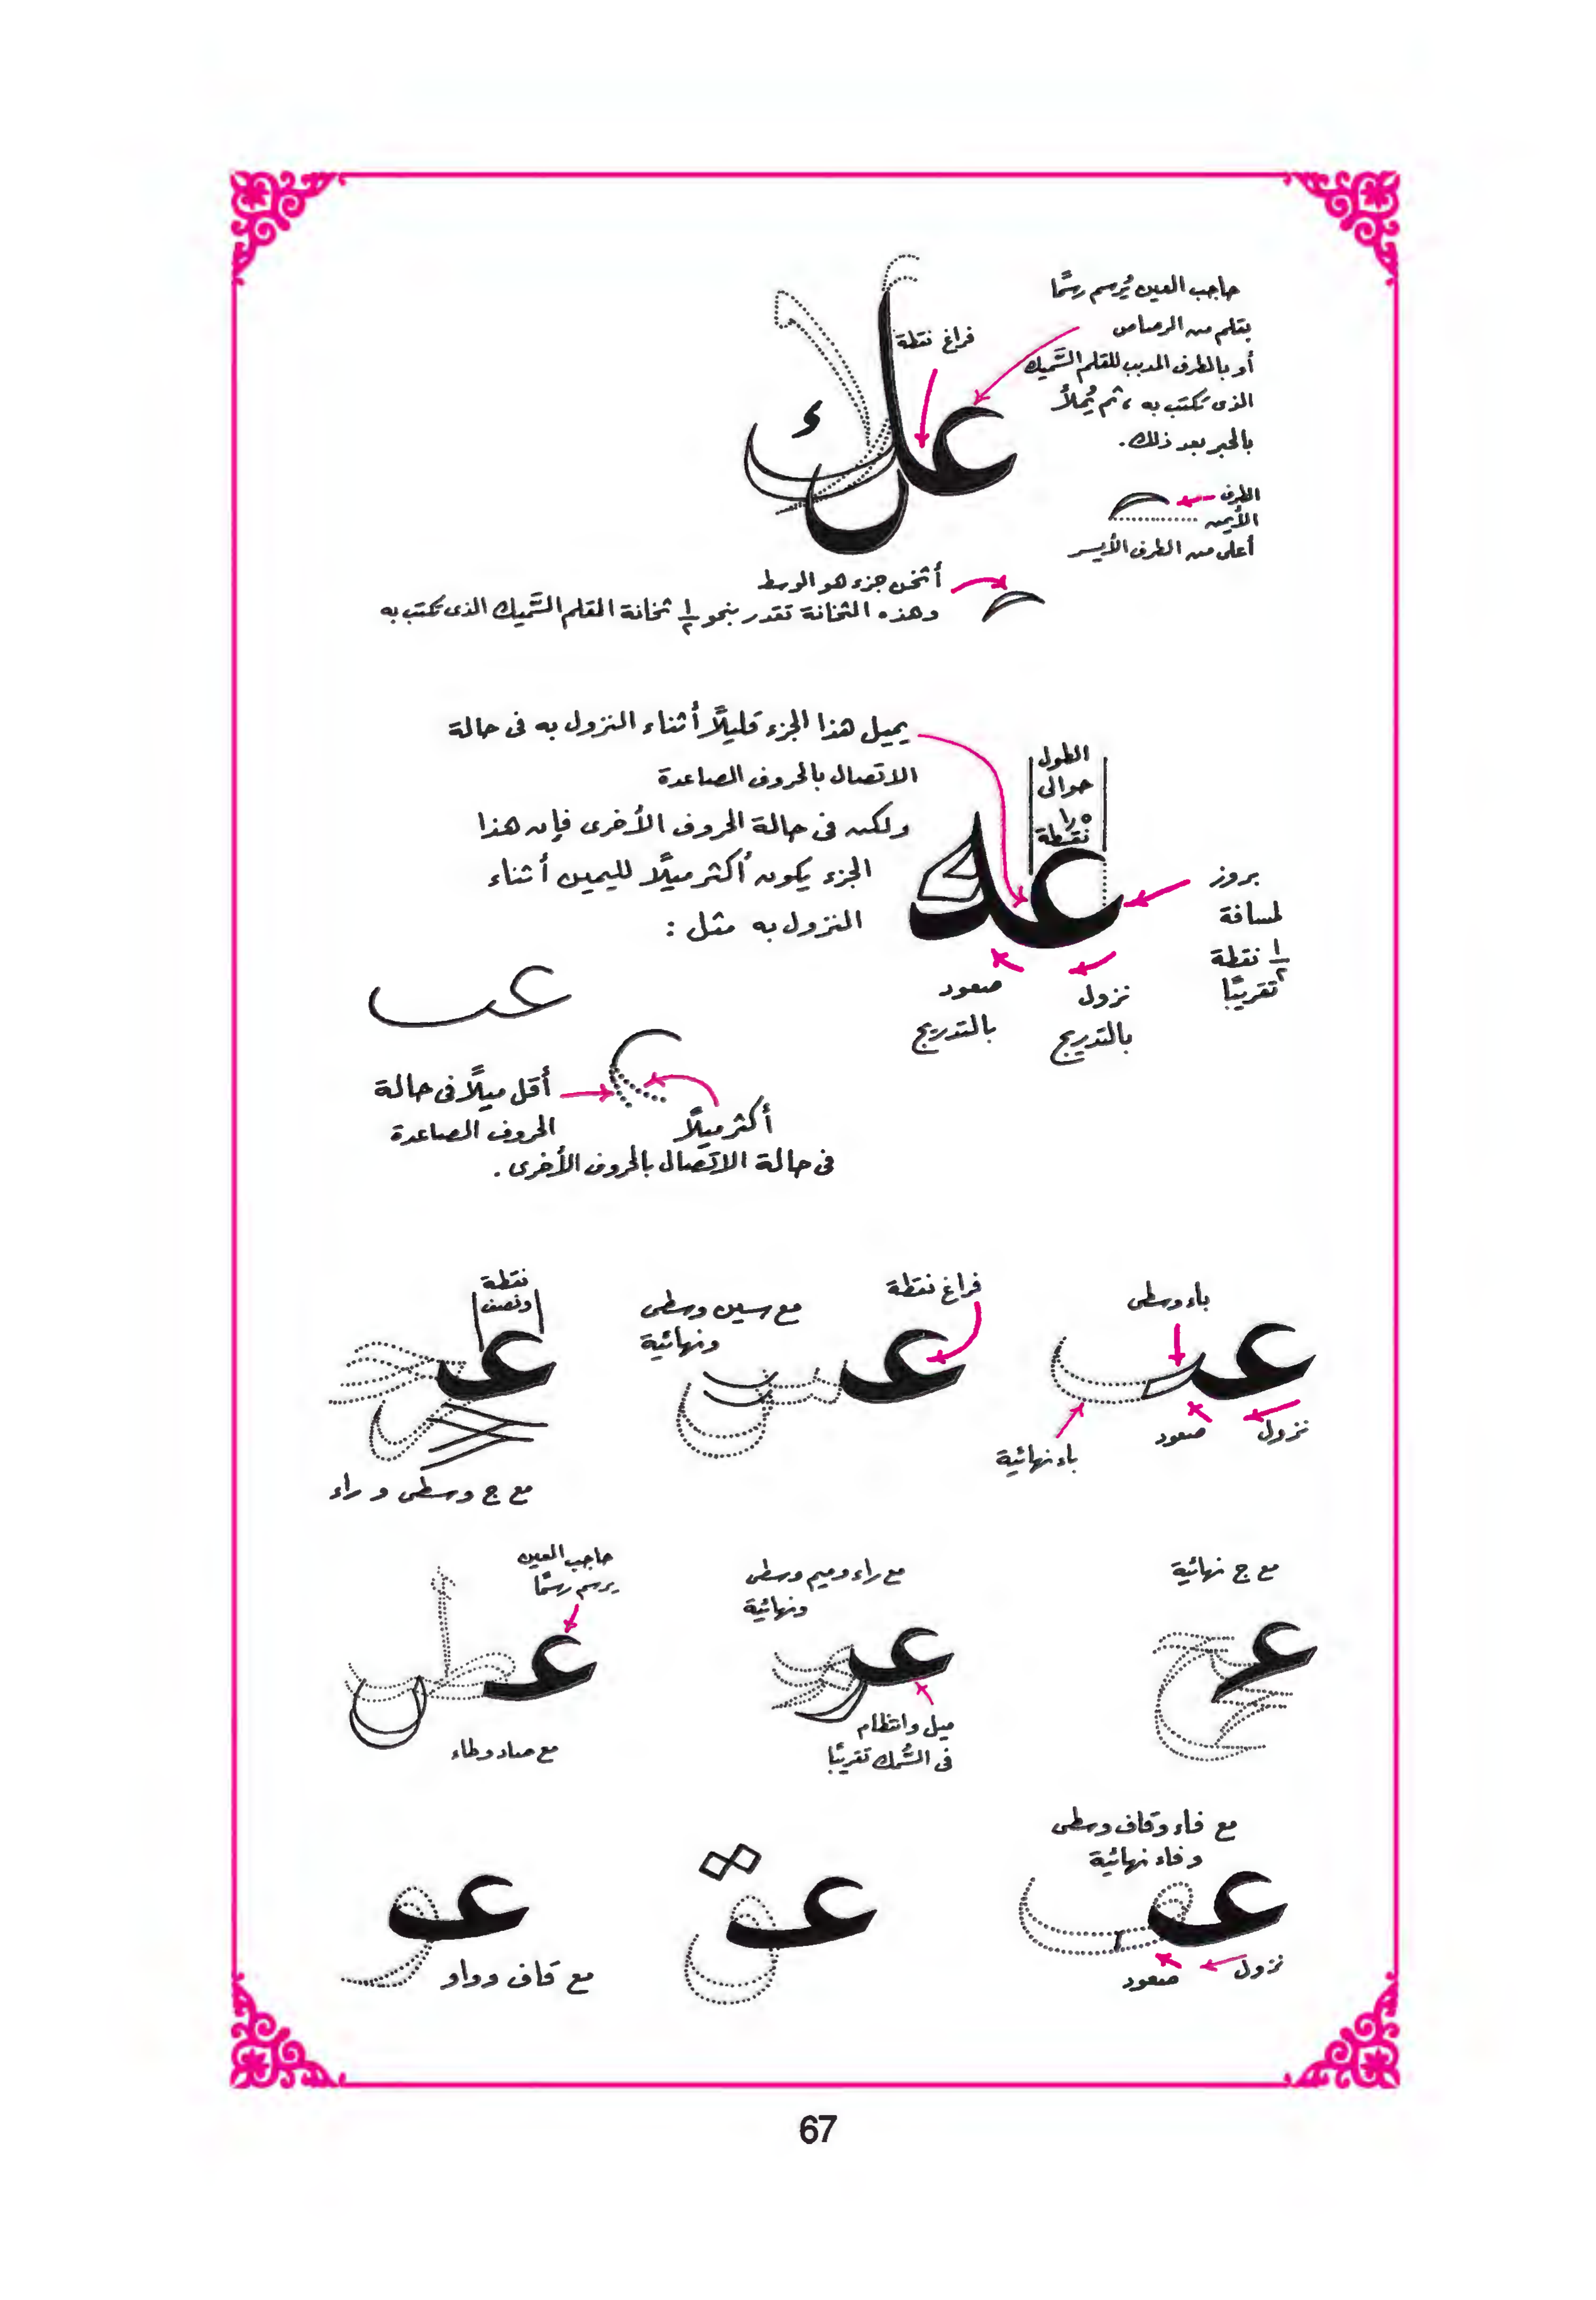 حاجب العين يُرسم رسمًا
بقلم من الرصاص
أو بالطرف المدبب للقلم السَّميك
الذى تكتب به ، ثم يُملأ
بالحبر بعد ذلك.
فراغ نقطة
الطرف
الأيمن
أعلى من الطرف الأيسر
أثخن جزء هو الوسط
وهذه الثخانة تقدر بنحو ١/٢ ثخانة القلم السَّميك الذى تكتب به
يميل هذا الجزء قليلاً أثناء النزول به فى حالة
الاتصال بالحروف الصاعدة
ولكن فى حالة الحروف الأخرى فإن هذا
الجزء يكون أكثر ميلًا لليمين أثناء
النزول به مثل :
الطول
حوالى
١٫٥
نقطة
بروز
لمسافة
١/٢ نقطة
تقريبًا
نزول
بالتدريج
صعود
بالتدريج
عب
أقل ميلاً فى حالة
الحروف الصاعدة
أكثر ميلاً
فى حالة الاتصال بالحروف الأخرى .
باء وسطى
نزول
صعود
باء نهائية
فراغ نقطة
مع سين وسطى
ونهائية
نقطة
ونصف
مع ج وسطى و راء
مع ج نهائية
مع راء وميم وسطى
ونهائية
ميل وانتظام
فى السُّمك تقريبًا
حاجب العين
يرسم رسمًا
مع صاد وطاء
مع فاء وقاف وسطى
وفاء نهائية
نزول
صعود
مع قاف وواو
67